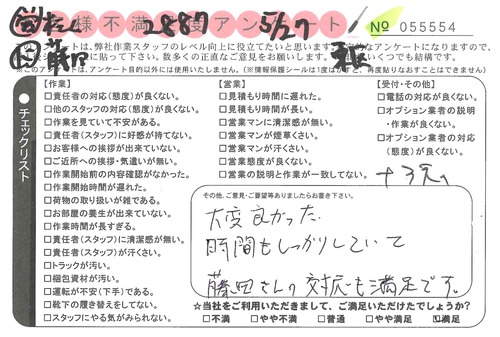 お客様不満足度アンケート
2887 5/27
№ 055554
藤田
このアンケートは、弊社作業スタッフのレベル向上に役立てたいと思います
数多くの正直なご意見をお願いします。
いくつでも結構です。
※このアンケートは、アンケート目的以外には使用いたしません。(※情報保護シールは1度はがすと、再度貼りなおすことはできません)
チェックリスト
【作業】
□責任者の対応(態度)が良くない。
□他のスタッフの対応(態度)が良くない。
□作業を見ていて不安がある。
□責任者(スタッフ)に好感が持てない。
□お客様への挨拶が出来ていない。
□ご近所への挨拶・気遣いが無い。
□作業開始前の内容確認がなかった。
□作業開始時間が遅れた。
□荷物の取り扱いが雑である。
□お部屋の養生が出来ていない。
□作業時間が長すぎる。
□責任者(スタッフ)に清潔感が無い。
□責任者(スタッフ)が汗くさい。
□トラックが汚い。
□梱包資材が汚い。
□運転が不安(下手)である。
□靴下の履き替えをしてない。
□スタッフにやる気がみられない。
【営業】
□見積もり時間に遅れた。
□見積もり時間が長い。
□営業マンに清潔感が無い。
□営業マンが煙草くさい。
□営業マンが汗くさい。
□営業態度が良くない。
□営業の説明と作業が一致してない。
【受付・その他】
□電話の対応が良くない。
□オプション業者の説明
・作業が良くない。
□オプション業者の対応
(態度)が良くない。
その他、ご意見・ご要望等ありましたらお書き下さい。
大変良かった
時間もしっかりしていて
藤田さんの対応も満足です。
☆当社をご利用いただきまして、ご満足いただけたでしょうか?
□不満 □やや不満 □普通 □やや満足 ☑満足